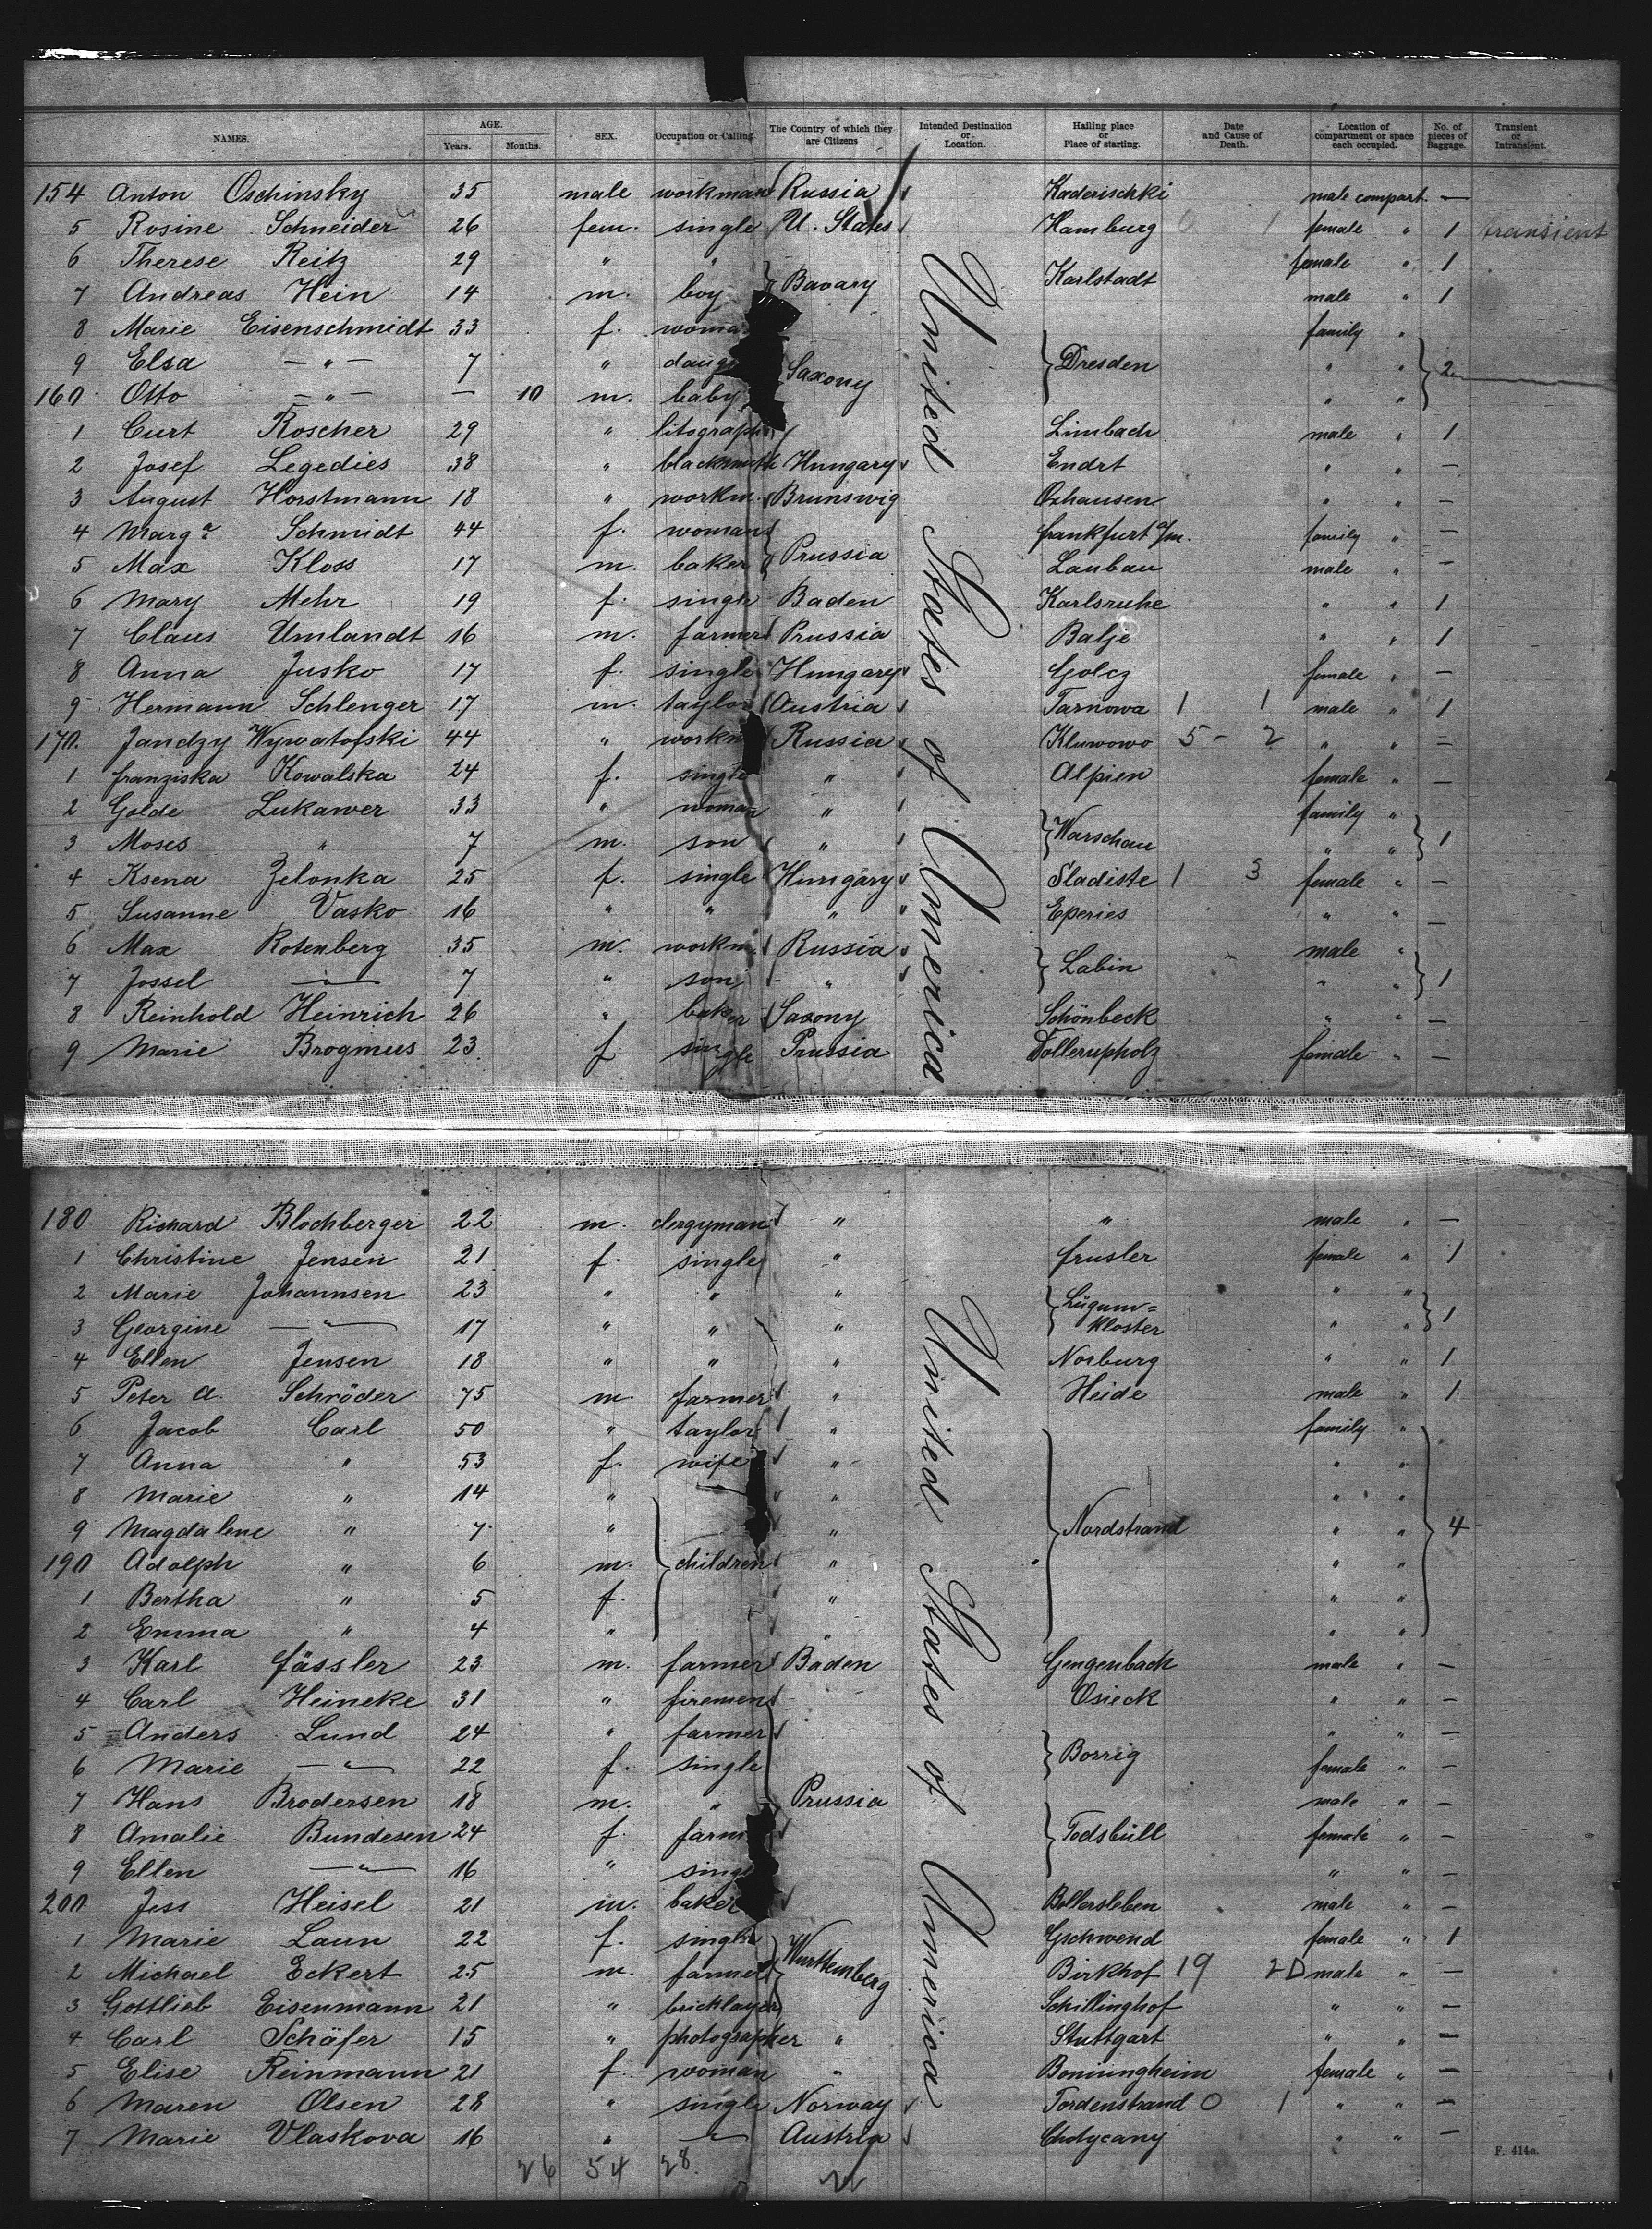 NAMES. AGE. Years. Months. SEX. Occupation or Calling. The Country of which they are Citizens Intended Destination or Location. Hailing place or Place of starting. Date and Cause of Death. Location of compartment or space each occupied. No. of pieces of Baggage. Transient or Intransient.
154 Anton Oschinsky 35 male workman Russia Kaderischki male compart. —
5 Rosine Schneider 26 fem. single U. States Hamburg 0 1 female " 1 transient
6 Therese Reitz 29 " " Bavary Karlstadt female " 1
7 Andreas Hein 14 m. boy male " 1
8 Marie Eisenschmidt 33 f. woman Saxony Dresden family " 2
9 Elsa — " — 7 " daug " "
160 Otto — " — — 10 m. baby " "
1 Curt Roscher 29 " litograph Limbach male " 1
2 Josef Legedies 38 " blacksmith Hungary Endrt " " —
3 August Horstmann 18 " workm. Brunswig Oxhausen " " —
4 Marga Schmidt 44 f. woman Prussia Frankfurt a/m. family " —
5 Max Kloss 17 m. baker Lauban male " —
6 Mary Mehr 19 f. single Baden Karlsruhe " " 1
7 Claus Umlandt 16 m. farmer Prussia Balje " " 1
8 Anna Jusko 17 f. single Hungary Golcz female " —
9 Hermann Schlenger 17 m. taylor Austria Tarnowa 1 1 male " 1
170. Jandzy Wywatofski 44 " workm Russia Kluwowo 5 - 2 " " —
1 Franziska Kowalska 24 f. single " Alpien female " —
2 Golde Lukawer 33 " woman " Warschau family " 1
3 Moses " 7 m. son " " "
4 Ksena Zelonka 25 f. single Hungary Sladiste 1 3 female " —
5 Susanne Vasko 16 " " " Eperies " " —
6 Max Rotenberg 35 m. workm. Russia Labin male " 1
7 Jossel — " — 7 " son " " "
8 Reinhold Heinrich 26 " baker Saxony Schönbeck " " —
9 Marie Brogmus 23 f single Prussia Dollerupholz female " —
United States of America
180 Richard Blochberger 22 m. clergyman " " male " —
1 Christine Jensen 21 f. single " Frusler female " 1
2 Marie Johannsen 23 " " " Lügum= " " 1
3 Georgine — " — 17 " " " kloster " "
4 Ellen Jensen 18 " " " Norburg " " 1
5 Peter A. Schröder 75 m farmer " Heide male " 1
6 Jacob Carl 50 " taylor " Nordstrand family " 4
7 Anna " 53 f. wife " " "
8 Marie " 14 " children " " "
9 Magdalene " 7 " " " "
190 Adolph " 6 m. " " "
1 Bertha " 5 f. " " "
2 Emma " 4 " " " "
3 Karl Fässler 23 m. farmer Baden Gengenbach male " —
4 Carl Heineke 31 " firemen Prussia Osieck " " —
5 Anders Lund 24 " farmer Borrig " " —
6 Marie — " — 22 f. single female " —
7 Hans Brodersen 18 m. " Todsbüll male " —
8 Amalie Bundesen 24 f. farm female " —
9 Ellen — " — 16 " singl " " —
200 Jess Heisel 21 m. baker Bollersleben male " —
1 Marie Laun 22 f. single Wurttemberg Gschwend female " 1
2 Michael Eckert 25 m. farmer Birkhof 19 2D male " —
3 Gottlieb Eisenmann 21 " bricklayer Schillinghof " " —
4 Carl Schäfer 15 " photographer " Stuttgart " " —
5 Elise Reinmann 21 f. woman " Bönnigheim female " —
6 Maren Olsen 28 " single Norway Tordenstrand 0 1 " " —
7 Marie Vlaskova 16 " — " — Austria Chotycany " " —
United States of America
26 54 28
F. 414a.